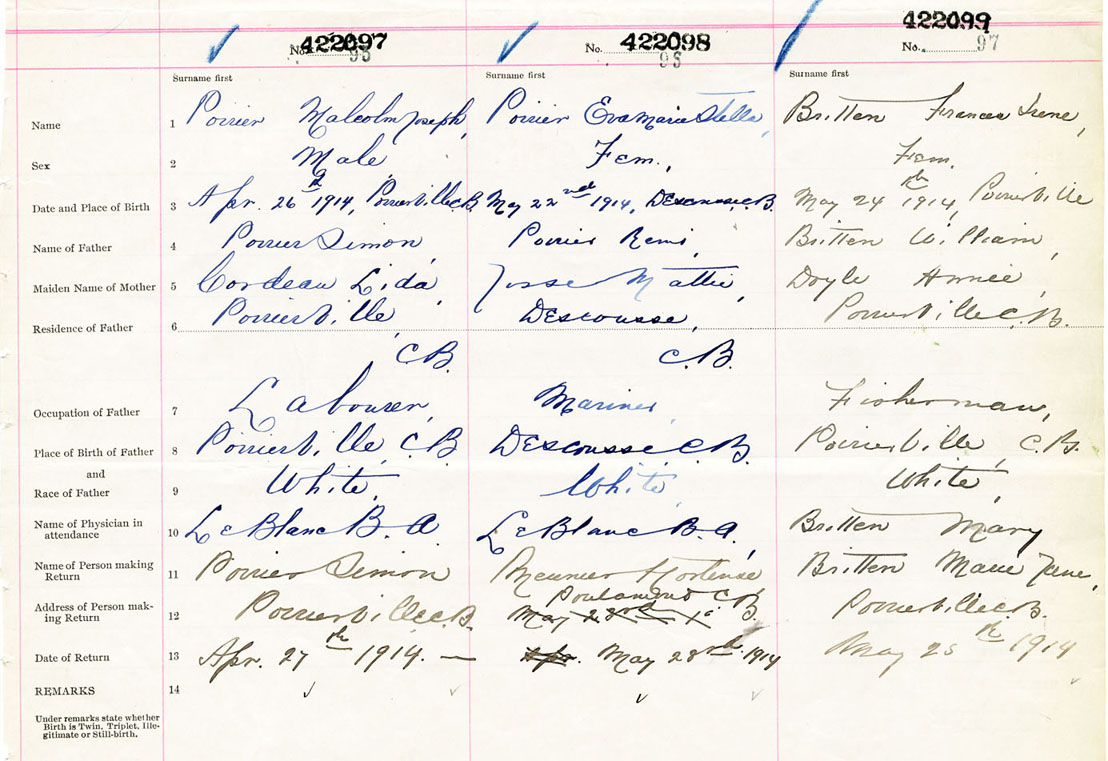 No. 422097 95 No. 422098 96 No. 422099 97
Surname first Surname first Surname first
Name 1 Poirier Malcolm Joseph, Poirier Eva Marie Stella, Britten Frances Irene,
Sex 2 Male, Fem., Fem.
Date and Place of Birth 3 Apr. 26th 1914, PoirierVille C.B. May 22nd 1914, Descousse C.B. May 24th 1914, PoirierVille
Name of Father 4 Poirier Simon Poirier Remi, Britten William,
Maiden Name of Mother 5 Cordeau Lida, Josse Mattie, Doyle Annie,
Residence of Father 6 PoirierVille, Descousse, PoirierVille C.B.
C.B. C.B.
Occupation of Father 7 Labourer, Mariner, Fisherman,
Place of Birth of Father 8 PoirierVille, C.B. Descousse C.B. PoirierVille, C.B.
and
Race of Father 9 White, White, White,
Name of Physician in attendance 10 LeBlanc B. A. LeBlanc B. A., Britten Mary
Name of Person making Return 11 Poirier Simon Meunier Hortense Britten Marie Jane,
Address of Person making Return 12 PoirierVille C.B. Poulamond C.B. PoirierVille C.B.
May 23rd
Date of Return 13 Apr. 27th 1914. — Apr. May 28th 1914 May 25th 1914
REMARKS 14
Under remarks state whether
Birth is Twin, Triplet, Ille-
gitimate or Still-birth.